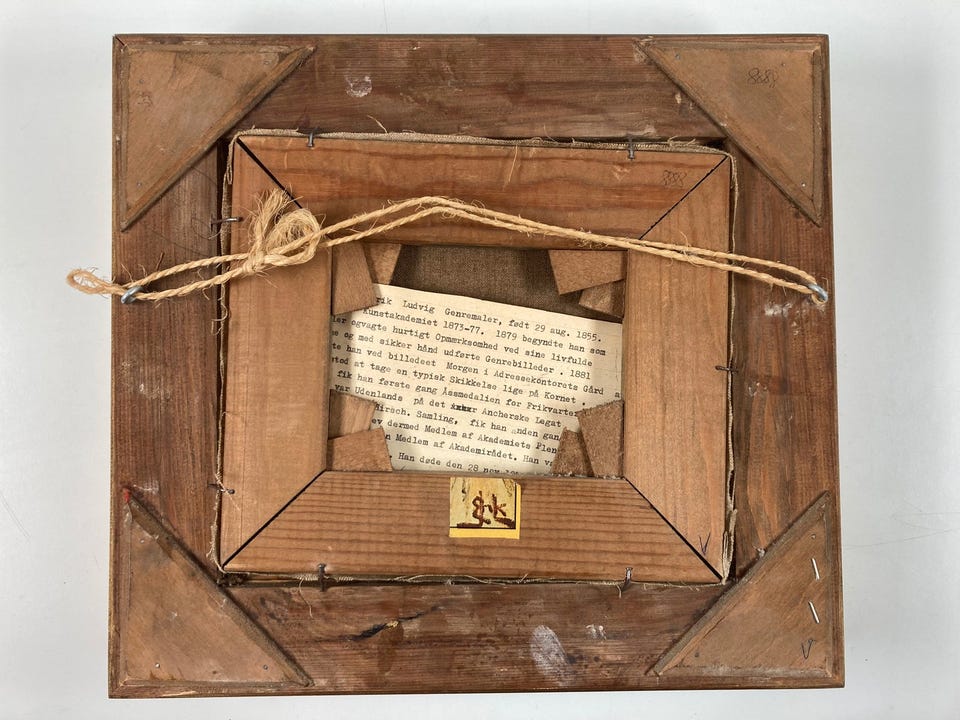 8889
888
rik Ludvig Genremaler, født 29 aug. 1855.
Kunstakademiet 1873-77. 1879 begyndte han som
er ogvagte hurtigt Opmærksomhed ved sine livfulde
e og med sikker hånd udførte Genrebilleder . 1881
te han ved billedeet Morgen i Adressekontorets Gård
tod at tage en typisk Skikkelse lige på Kornet . a
fik han første gang Åssmedalien for Frikvarter
var Udenlands på det xxxx Ancherske Legat
Hirsch. Samling, fik han anden gan
ev dermed Medlem af Akademiets Plen
n Medlem af Akademirådet. Han v
Han døde den 28 nov